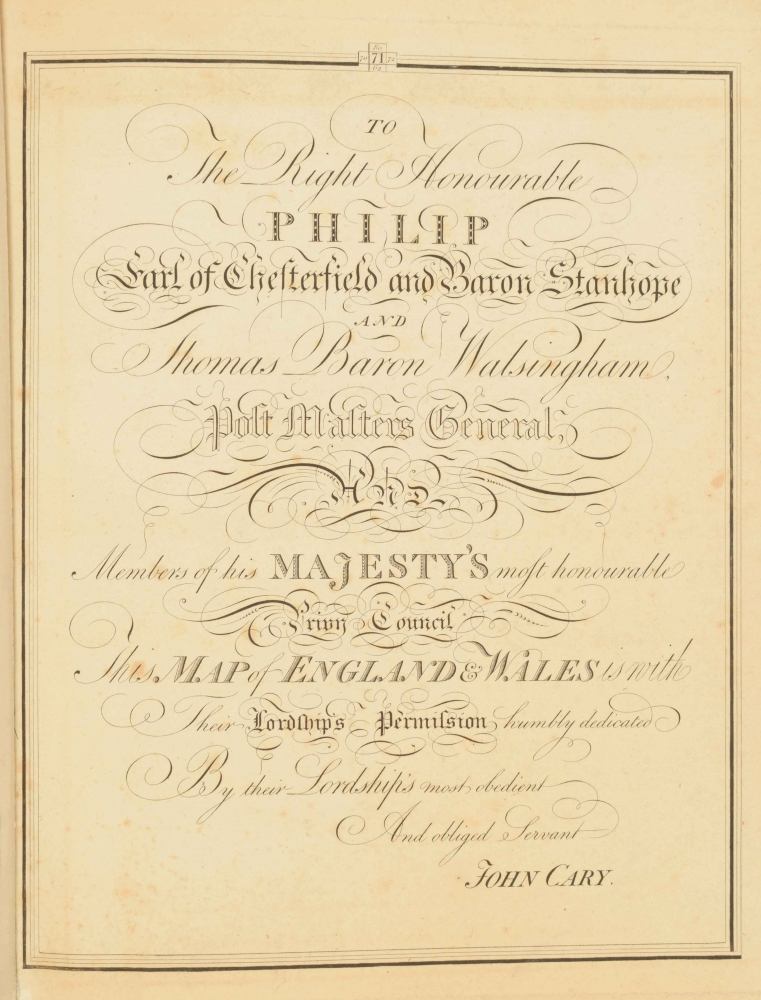 71
TO
The Right Honourable
PHILIP
Earl of Cheſterfield and Baron Stanhope
AND
Thomas Baron Walsingham,
Poſt Maſters General,
AND
Members of his MAJESTY'S moſt honourable
Privy Council
This MAP of ENGLAND & WALES is with
Their Lordſhip's Permiſsion humbly dedicated
By their Lordship's most obedient
And obliged Servant
JOHN CARY.